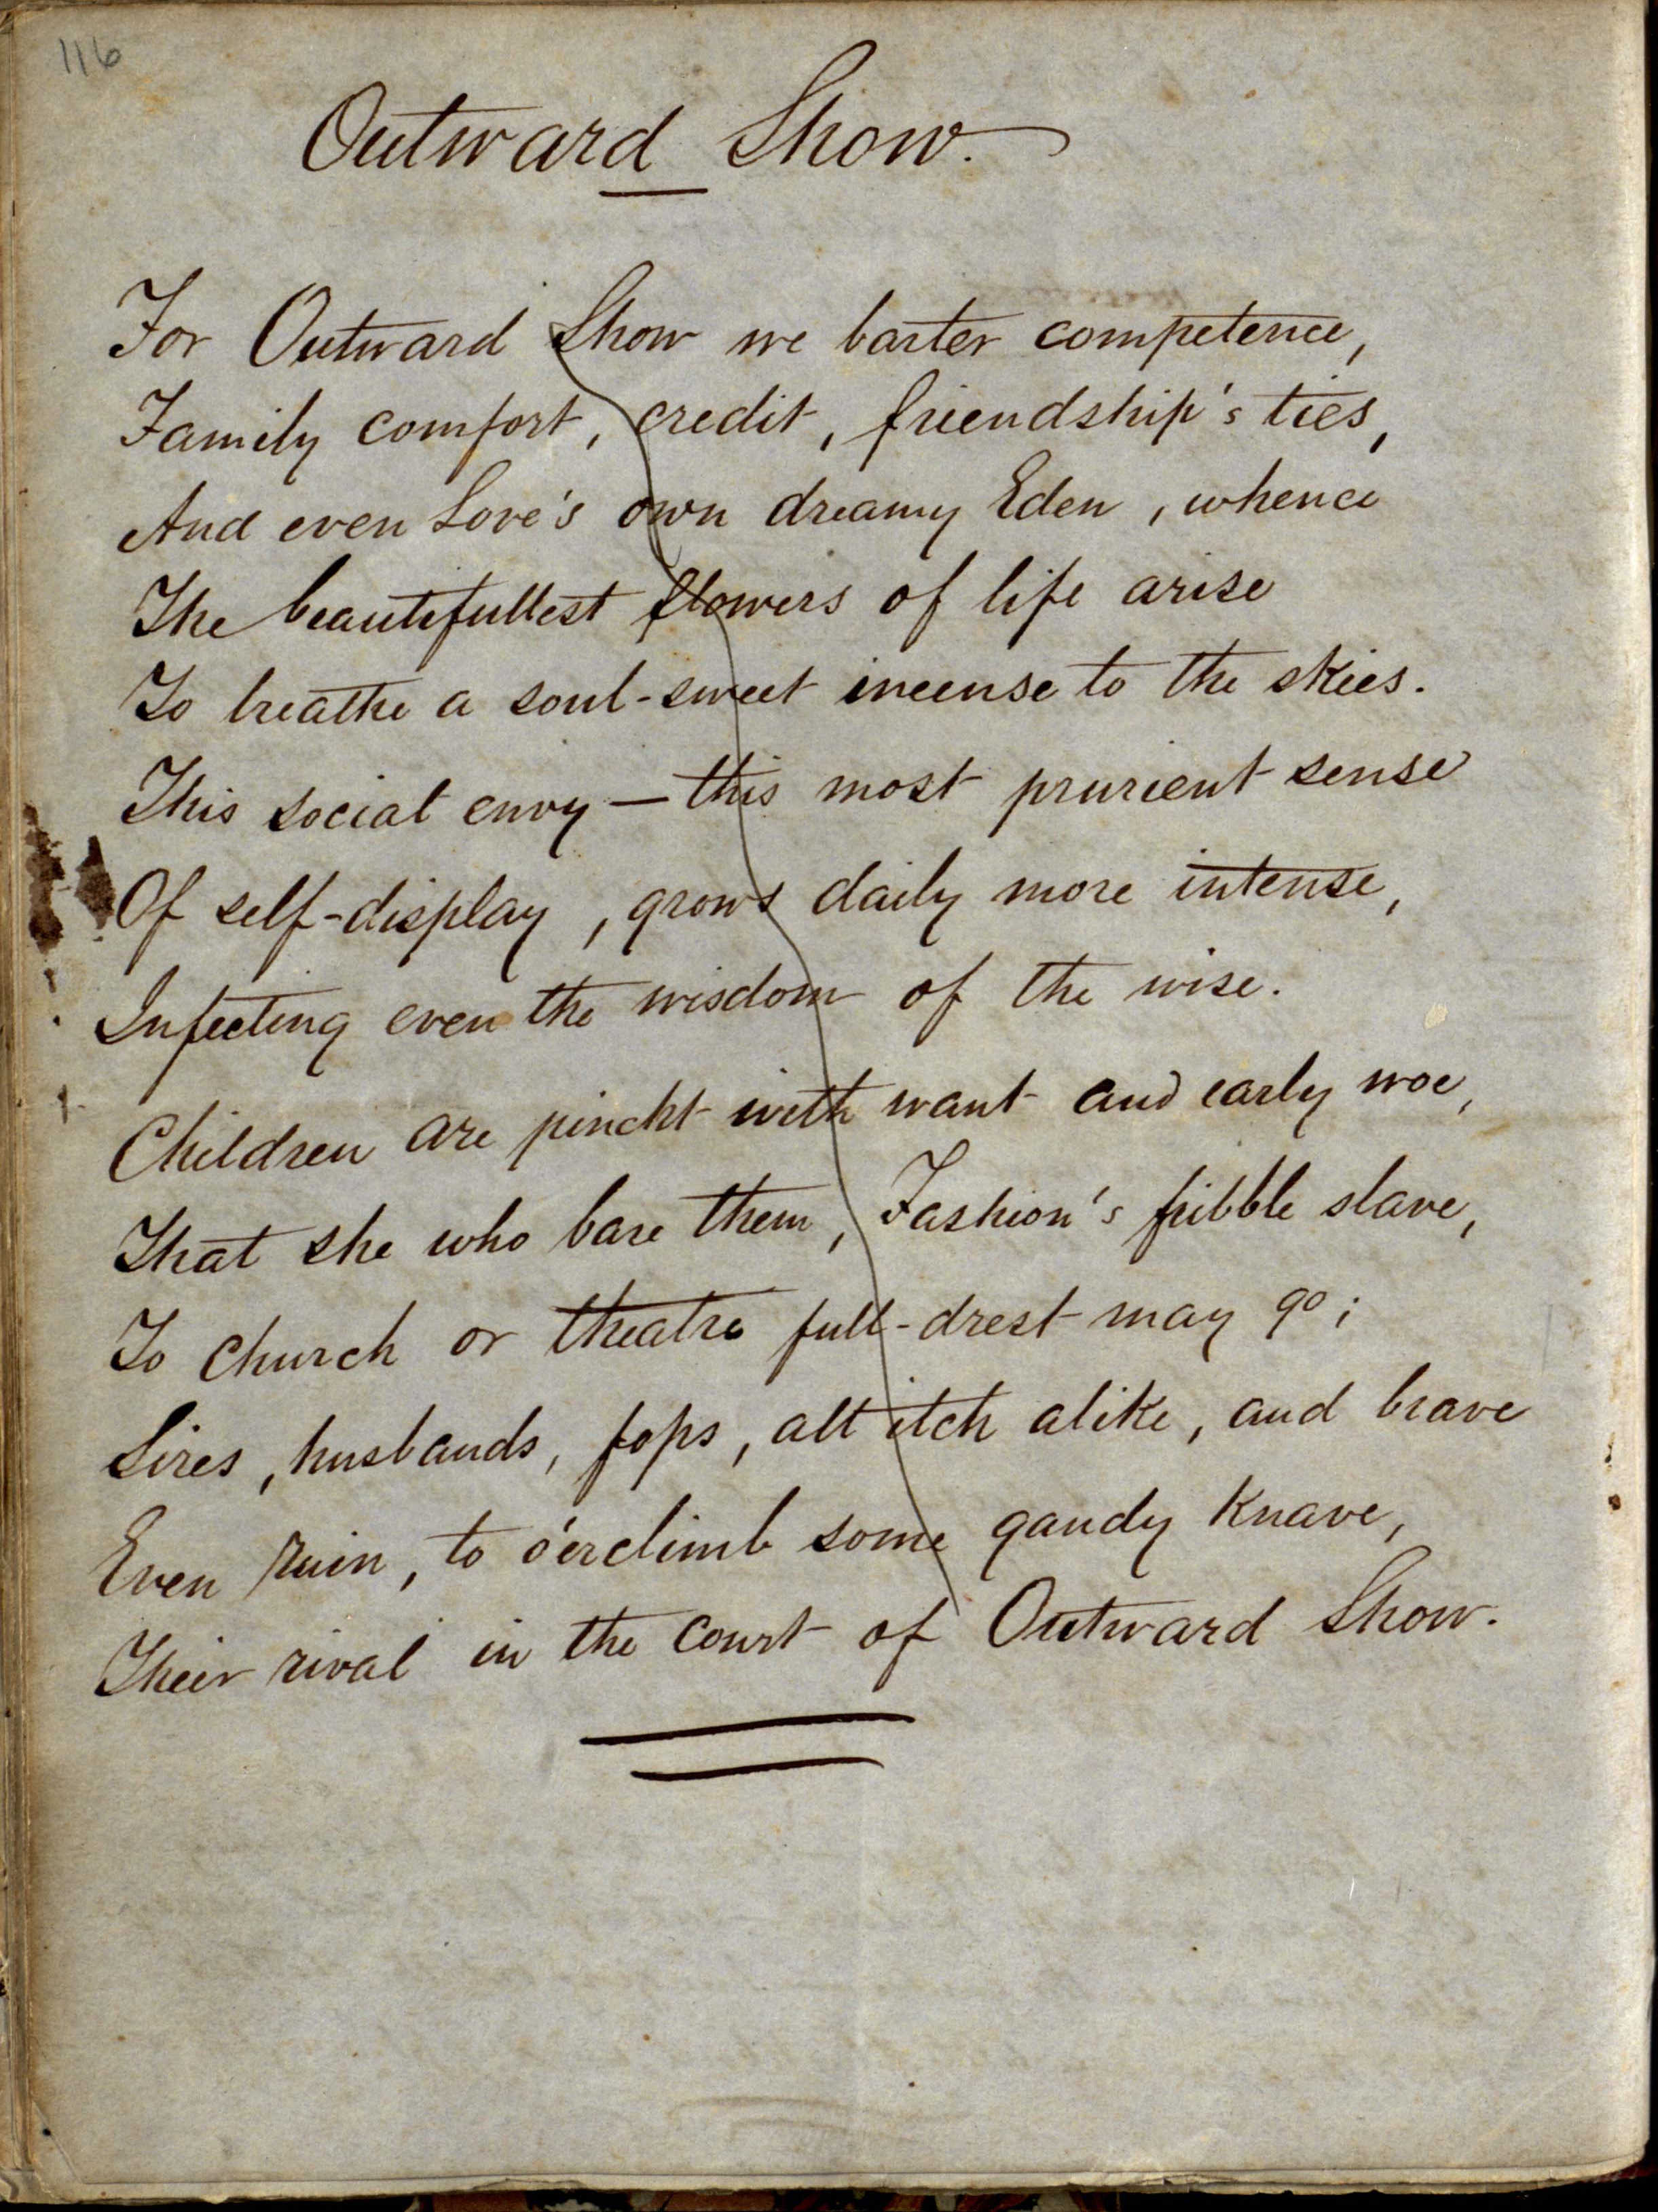 116
Outward Show.
For Outward Show we barter competence,
Family comfort, credit, friendship's ties,
And even Love's own dreamy Eden, whence
The beautifullest flowers of life arise
To breathe a soul-sweet incense to the skies.
This social envy — this most prurient sense
Of self-display, grows daily more intense,
Infecting even the wisdom of the wise.
Children are pincht with want and early woe,
That she who bare them, Fashion's fribble slave,
To church or theatre full-drest may go;
Sires, husbands, fops, all itch alike, and brave
Even ruin, to o'erclimb some gaudy Knave,
Their rival in the court of Outward Show.